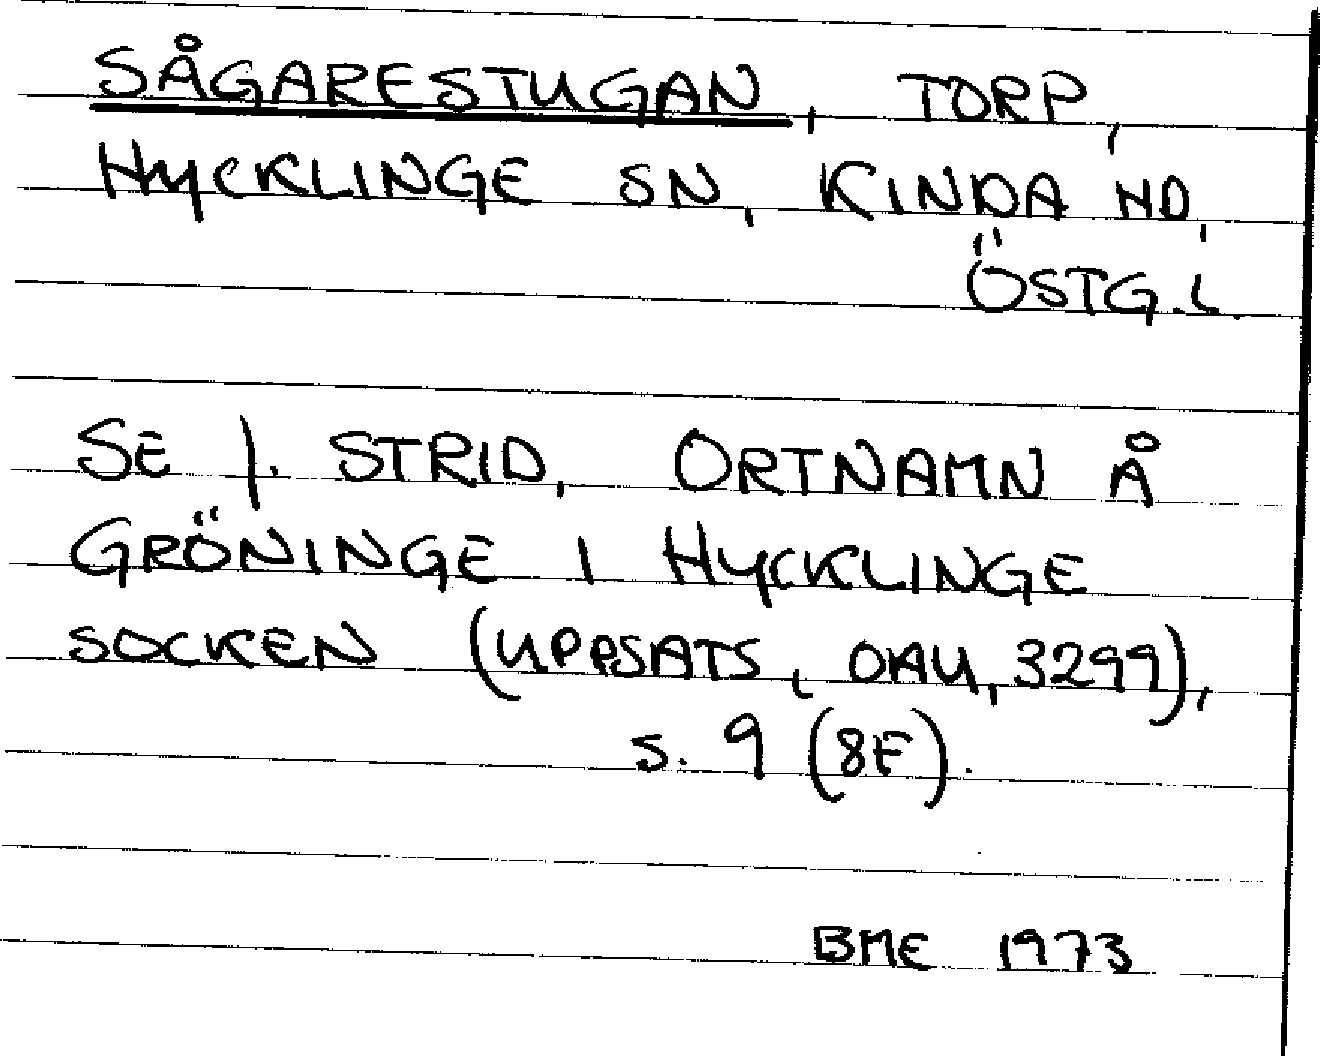 SÅGARESTUGAN, TORP,
HYCKLINGE SN, KINDA HD,
ÖSTG.L.
SE J. STRID, ORTNAMN Å
GRÖNINGE I HYCKLINGE
SOCKEN (UPPSATS, OAU, 3299),
S. 9 (8F).
BME 1973